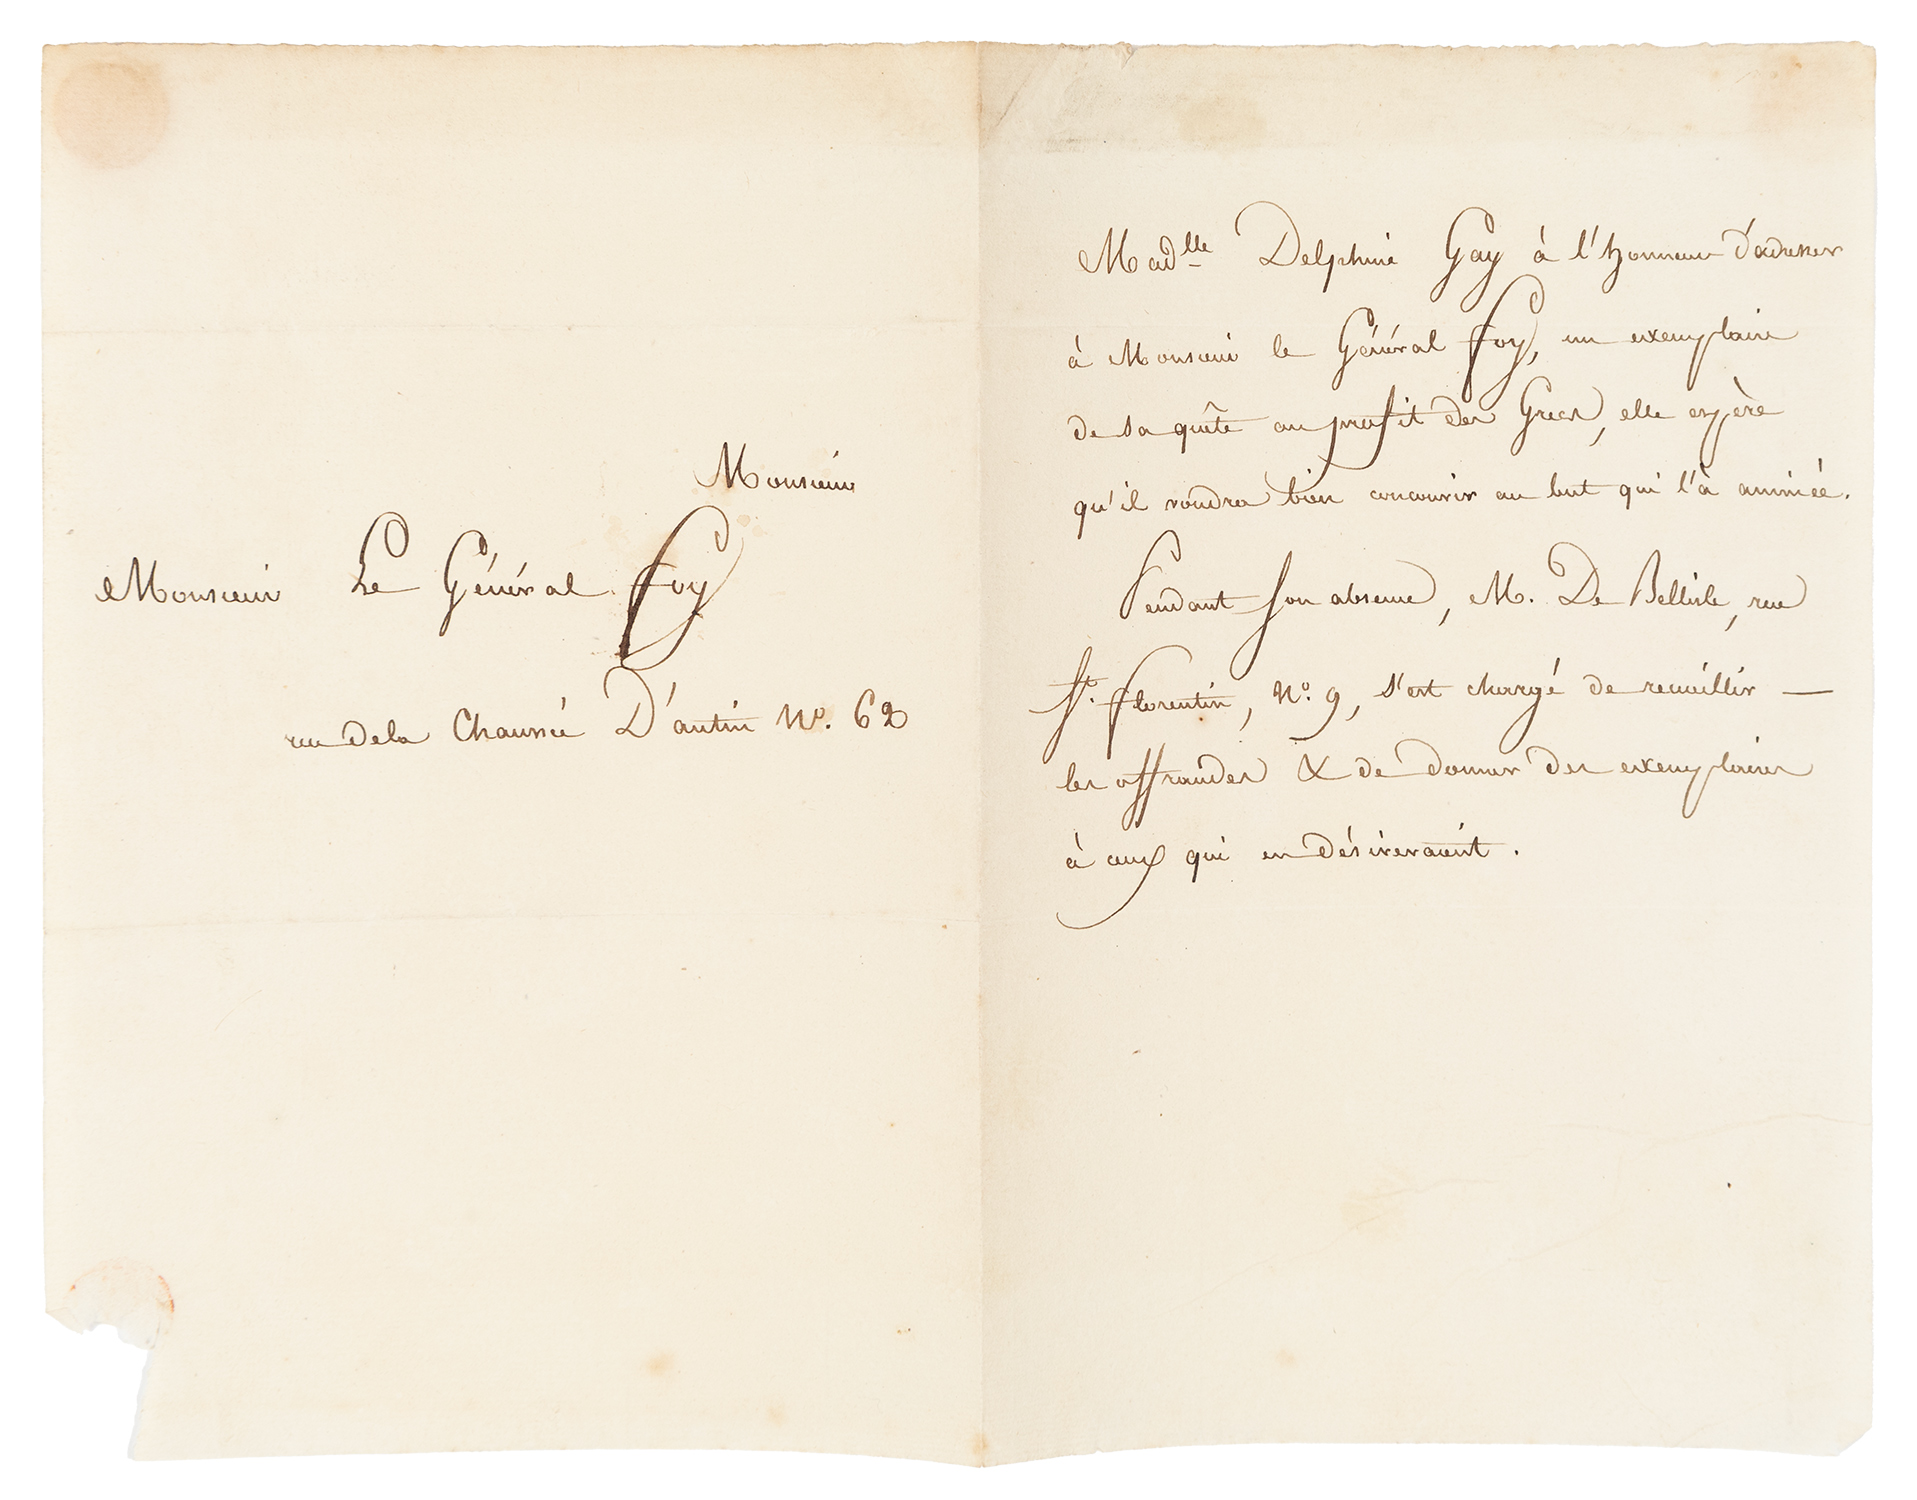 Monsieur
Monsieur Le Général Foy
rue de la Chaussée D'antin N.º 62
Mad.lle Delphine Gay à l'honneur d'adresser
à Monsieur le Général Foy, un exemplaire
de sa quête au profit des Grecs, elle espère
qu'il voudra bien concourir au but qui l'à animée.
Pendant son absence, M. De Bellisle, rue
S.t florentin, N.º 9, s'est chargé de recueillir —
les offrandes & de donner des exemplaires
à ceux qui en désireraient.